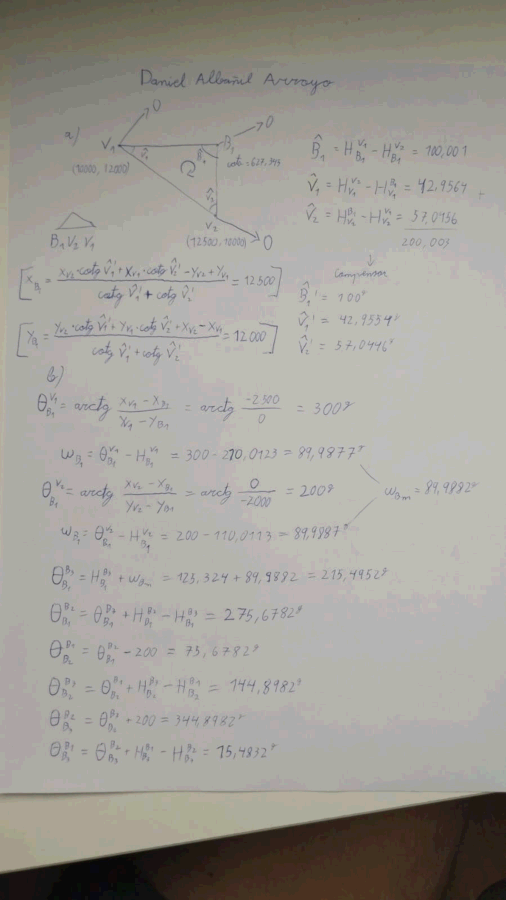 Daniel Albañil Arroyo
a)
O
O
V₁
B₁
V̂₁
B̂₁
(10000, 12000)
V̂₂
V₂
(12500, 10000)
O
B₁ V₂ V₁
B̂₁ = H_B₁^V₁ − H_B₁^V₂ = 100,001
V̂₁ = H_V₁^V₂ − H_V₁^B₁ = 42,9564
V̂₂ = H_V₂^B₁ − H_V₂^V₁ = 57,0456
200,003
↓
Compensar
B̂₁' = 100ᵍ
V̂₁' = 42,9554ᵍ
V̂₂' = 57,0446ᵍ
[X_B₁ = (X_V₂·cotg V̂₁' + X_V₁·cotg V̂₂' − Y_V₂ + Y_V₁) / (cotg V̂₁' + cotg V̂₂') = 12500]
[Y_B₁ = (Y_V₂·cotg V̂₁' + Y_V₁·cotg V̂₂' + X_V₂ − X_V₁) / (cotg V̂₁' + cotg V̂₂') = 12000]
b)
θ_B₁^V₁ = arctg (X_V₁ − X_B₁)/(Y_V₁ − Y_B₁) = arctg −2500/0 = 300ᵍ
ω_B₁ = θ_B₁^V₁ − H_B₁^V₁ = 300 − 210,0123 = 89,9877ᵍ
θ_B₁^V₂ = arctg (X_V₂ − X_B₁)/(Y_V₂ − Y_B₁) = arctg 0/−2000 = 200ᵍ
ω_Bm = 89,9882ᵍ
ω_B₁ = θ_B₁^V₂ − H_B₁^V₂ = 200 − 110,0113 = 89,9887ᵍ
θ_B₁^B₃ = H_B₁^B₃ + ω_Bm = 125,324 + 89,9882 = 215,4952ᵍ
θ_B₁^B₂ = θ_B₁^B₃ + H_B₁^B₂ − H_B₁^B₃ = 275,6782ᵍ
θ_B₂^B₁ = θ_B₁^B₂ − 200 = 75,6782ᵍ
θ_B₂^B₃ = θ_B₂^B₁ + H_B₂^B₃ − H_B₂^B₁ = 144,8982ᵍ
θ_B₃^B₂ = θ_B₂^B₃ + 200 = 344,8982ᵍ
θ_B₃^B₁ = θ_B₃^B₂ + H_B₃^B₁ − H_B₃^B₂ = 15,4832ᵍ